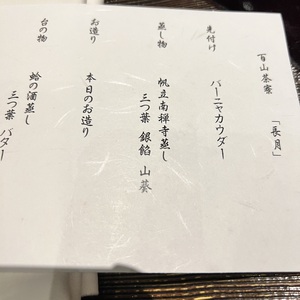 百山茶寮 「長月」
先付け
バーニャカウダー
蒸し物
帆立南禅寺蒸し
三つ葉 銀餡 山葵
お造り
本日のお造り
台の物
蛤の酒蒸し
三つ葉 バター